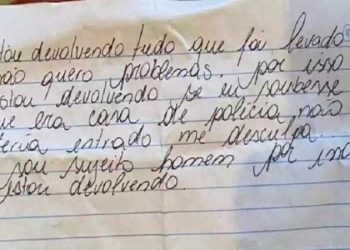 tou devolvendo tudo que foi levado
não quero problemas. por isso
stou devolvendo se eu soubesse
ue era casa de policia não
teria entrado me desculpa.
sou sujeito homem por isso
stou devolvendo.